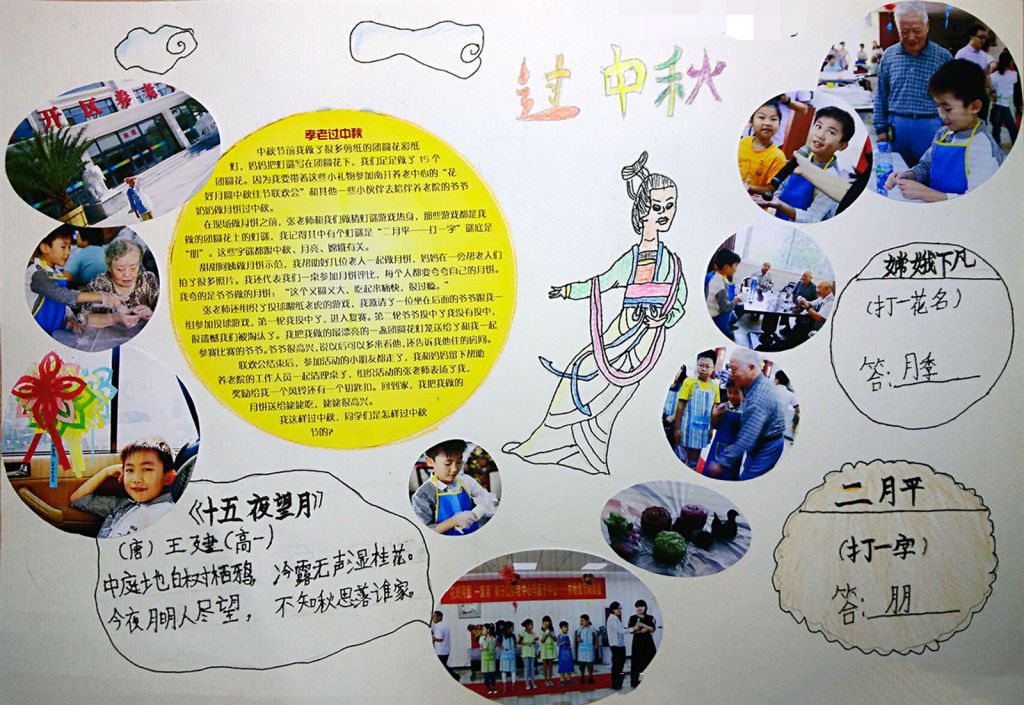 过中秋
开区养老
孝老过中秋
中秋节前我做了很多剪纸的团圆花彩纸
灯，妈妈把灯谜写在团圆花下，我们足足做了15个
团圆花。因为我要带着这些小礼物参加南开养老中心的“花
好月圆中秋佳节联欢会”和其他一些小伙伴去陪伴养老院的爷爷
奶奶做月饼过中秋。
在现场做月饼之前，张老师和我们做猜灯谜游戏热身，那些游戏都是我
做的团圆花上的灯谜，我记得其中有个灯谜是“二月平——打一字”谜底是
“朋”。这些字谜都跟中秋，月亮，嫦娥有关。
甜甜阿姨做月饼示范，我帮助好几位老人一起做月饼，妈妈在一旁帮老人们
拍了很多照片。我还代表我们一桌参加月饼评比，每个人都要夸夸自己的月饼。
我夸的是爷爷做的月饼：“这个又圆又大，吃起来痛快，很过瘾。”
张老师还组织了投球喂纸老虎的游戏，我邀请了一位坐在后面的爷爷跟我一
组参加投球游戏，第一轮我投中了，进入复赛。第二轮爷爷投中了我没有投中，
很遗憾我们被淘汰了。我把我做的最漂亮的一盏团圆花灯笼送给了和我一起
参赛比赛的爷爷。爷爷很高兴，说以后可以多来看他，还告诉我他住的房间。
联欢会结束后，参加活动的小朋友都走了，我和妈妈留下帮助
养老院的工作人员一起清理桌子，组织活动的张老师表扬了我，
奖励给我一个风铃还有一个钥匙扣。回到家，我把我做的
月饼送给姥姥吃，姥姥很高兴。
我这样过中秋，同学们是怎样过中秋
节的？
嫦娥下凡
（打一花名）
答：月季
二月平
（打一字）
答：朋
《十五夜望月》
（唐）王建（高一）
中庭地白树栖鸦，冷露无声湿桂花。
今夜月明人尽望，不知秋思落谁家。